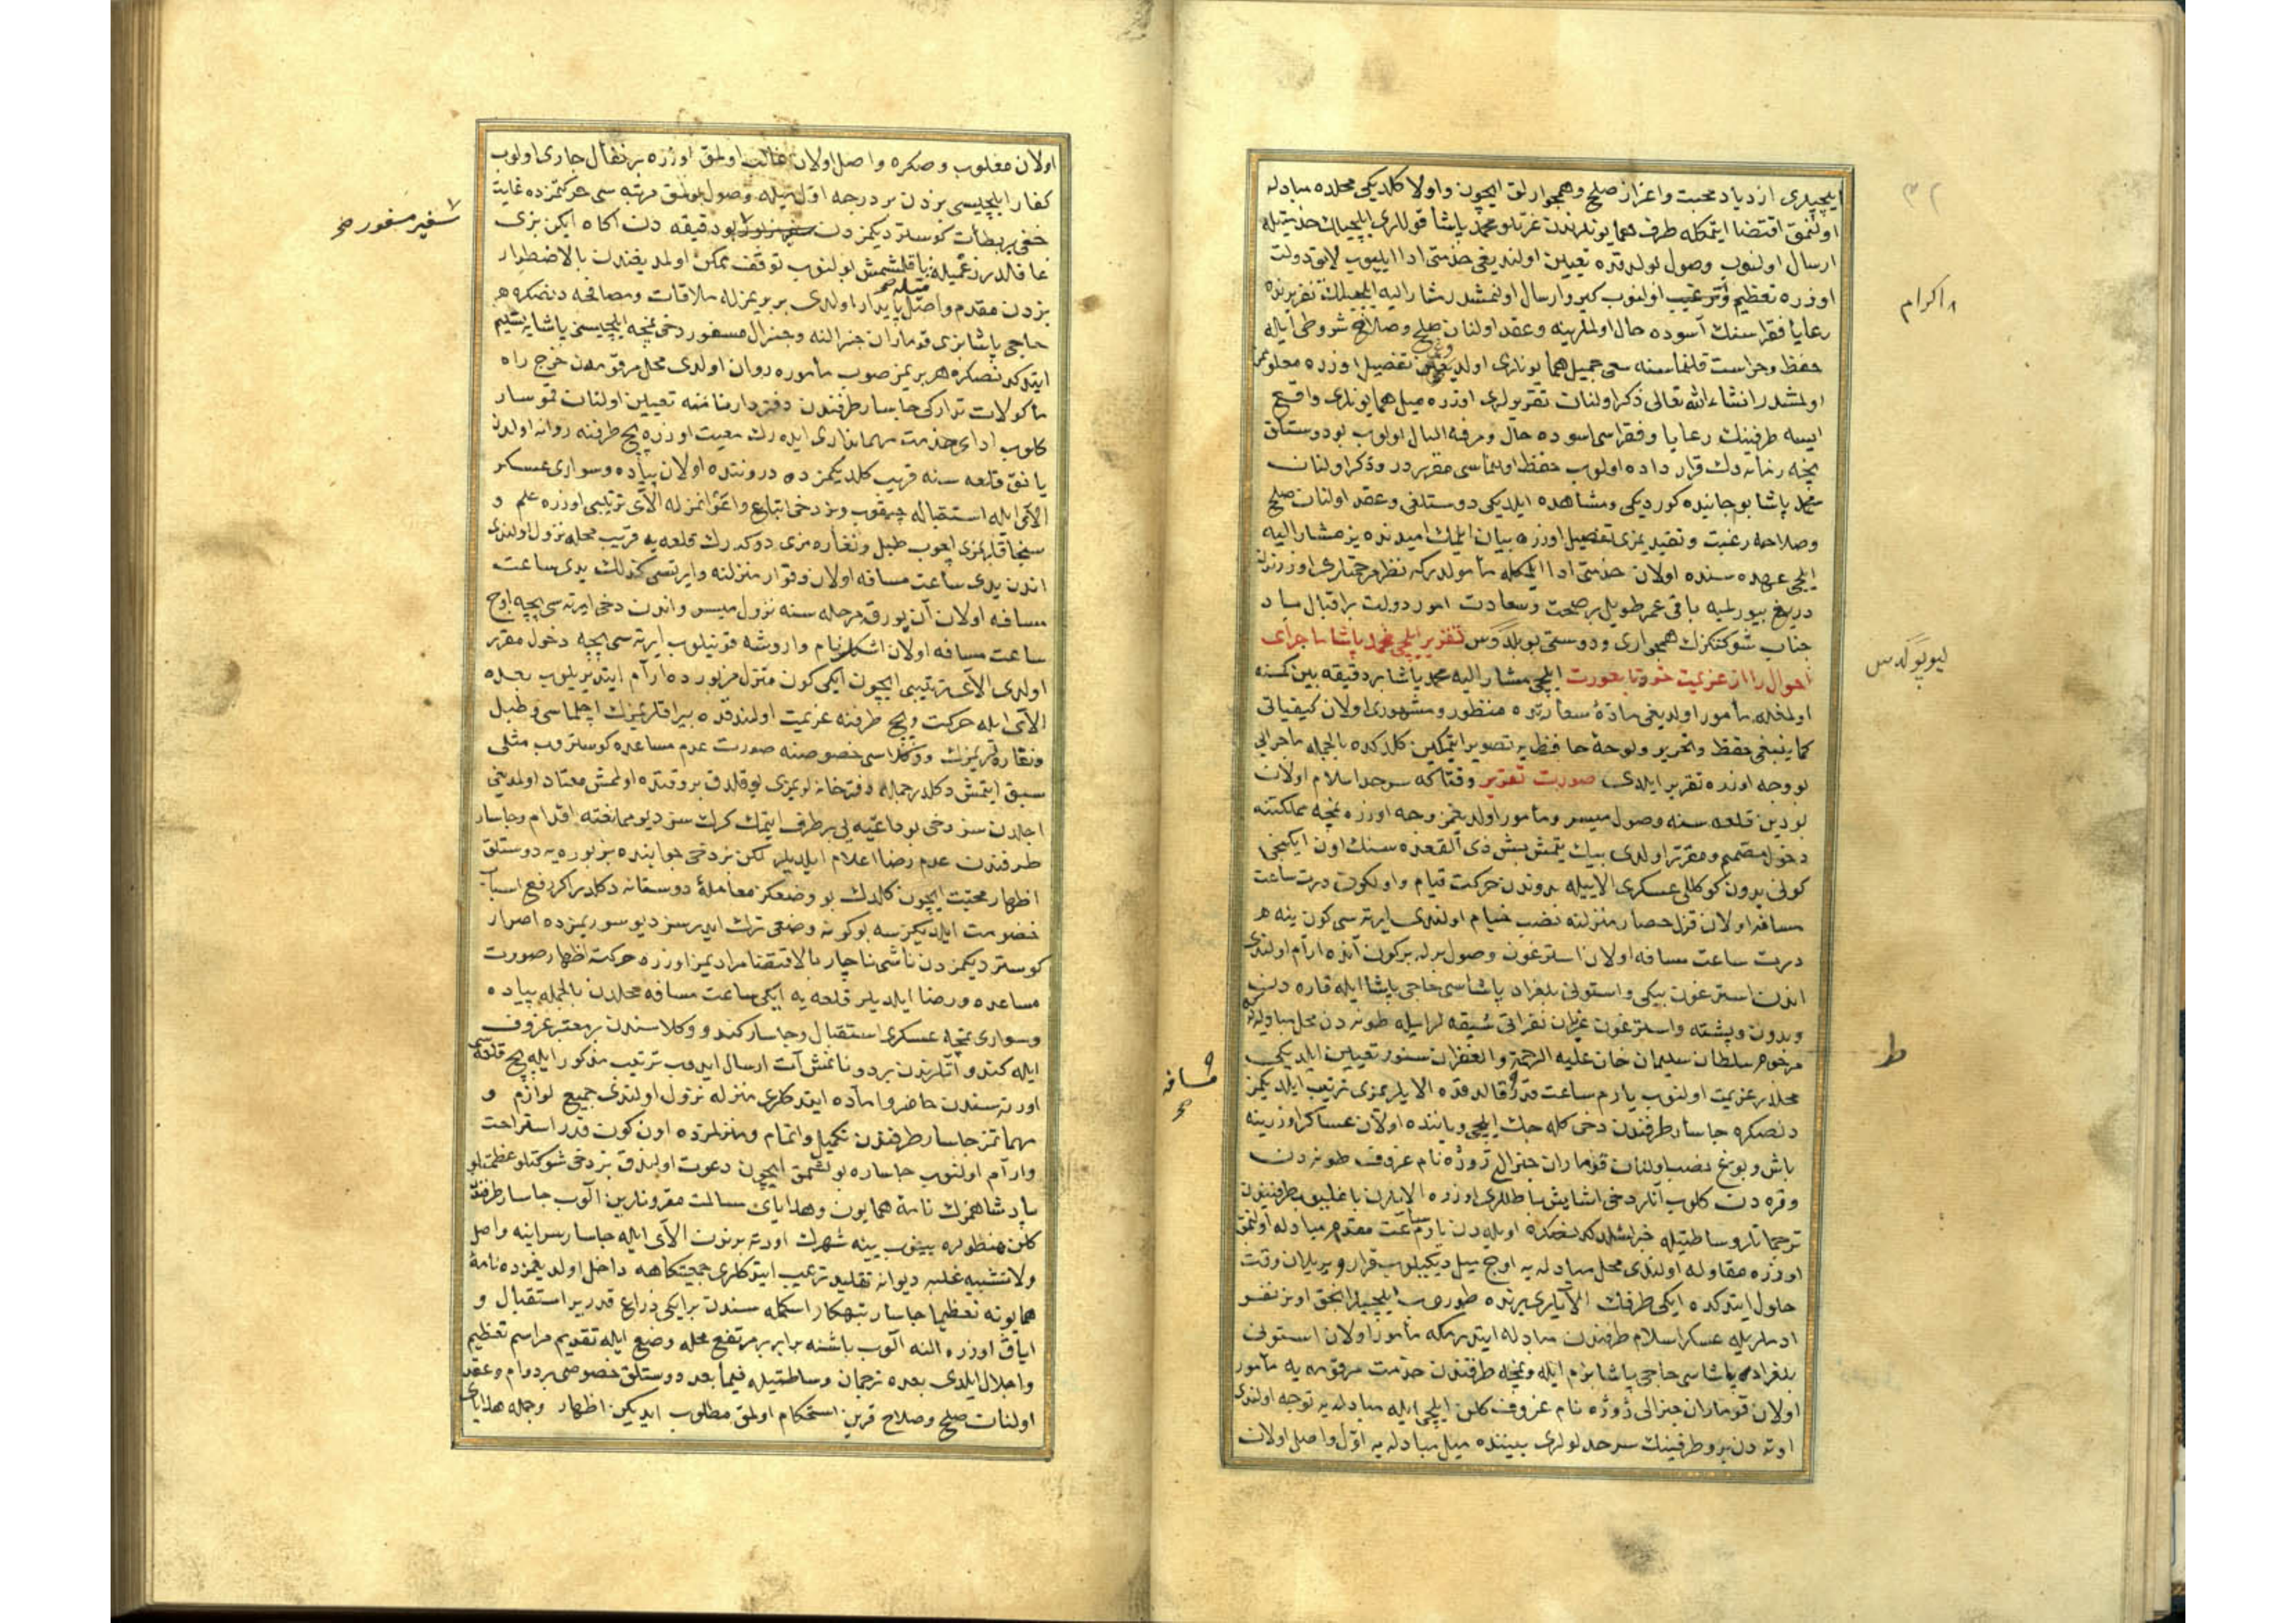 ایلچیلری ازدیاد محبت واعزاز صلح وهمجوارلق ایچون واولا کلدیکی محلده مبادله
اولنمق اقتضا ایتمکله طرف همایونلرندن عزتلو محمد پاشا قوللری ایلچیلك خدمتیله
ارسال اولنوب وصول بولدقده تعیین اولندیغی خدمتی ادا ایلیوب لایق دولت
اوزره تعظیم وترغیب اولنوب کیرو ارسال اولنمشدر مشار الیه ایلچینك تقریرنده
رعایا فقراسنك آسوده حال اولملرینه وعقد اولنان صلح وصلاحك شروطی ایله
حفظ وحراست قلنماسنه سعی جمیل همایونلری اولدیغی تفصیل اوزره معلوممز
اولمشدر انشاء الله تعالی ذکر اولنان تقریرلری اوزره میل همایونلری واقع
ایسه طرفینك رعایا وفقراسی اسوده حال ومرفه البال اولوب بو دوستلق
نیجه زمانه دك قرار داده اولوب حفظ اولنماسی مقرردر وذکر اولنان
محمد پاشا بو جانبده کوردیکی ومشاهده ایلدیکی دوستلغی وعقد اولنان صلح
وصلاحه رغبت وتقیدیمزی تفصیل اوزره بیان ایلمك امیدنده یز مشار الیه
ایلچی عهده سنده اولان خدمتی ادا ایلمکله مأمولدرکه نظر مرحمتلری اوزرندن
دریغ بیورلمیه باقی عمر طویل بر صحت وسعادت امور دولت بر اقبال باد
جناب شوکتکزك همجواری ودوستی بولیدکوس تقریر ایلچی محمد پاشا با جرای
احوال را از عزیمت خود تا بعورت ایلچی مشار الیه محمد پاشا بر دقیقه بین کمسنه
اولمغله مأمور اولدیغی ماده سفارتده منظور ومشهوری اولان کیفیاتی
کما ینبغی حفظ وتحریر ولوحهٔ حافظه یه تصویر ایتمکین کلدکده بالجمله ماجرایی
بو وجه اوزره تقریر ایلدی صورت تقریر وقتاکه سرحد اسلام اولان
بودین قلعه سنه وصول میسر ومأمور اولدیغمز وجه اوزره نمچه مملکتنه
دخول مصمم ومقرر اولدی بیك یتمش بش ذی القعده سنك اون ایکنجی
کونی بدون کوکللی عسکری الاییله بدوندن حرکت قیام واولکون درت ساعت
مسافه اولان قزل حصار منزلنه نصب خیام اولندی ایرته سی کون ینه
درت ساعت مسافه اولان استرغون وصول بوله بر کون آنده ارام اولندی
اندن استرغون بیکی واستولنی بلغراد پاشاسی حاجی پاشا ایله قاره دن
وبدون وپشته واسترغون عزبان نفراتی شیقه لرایله طونه دن محل مبادله
مرحوم سلطان سلیمان خان علیه الرحمة والغفران سنور تعیین ایلدیکی
محله عزیمت اولنوب یارم ساعت قدر قالدقده الایلریمزی ترتیب ایلدیکمز
دنصکره چاسار طرفندن دخی کله جك ایلچی ویاننده اولان عساکر اوزرینه
باش وبوغ نصب اولنان قوماران جنرالی ژوژه نام غروف طونه دن
وقره دن کلوب آنلر دخی آسایش باطللری اوزره الایلرن باغلیوب طرفیندن
ترجمانلر وساطتیله خبرلشلدکدنصکره اویله دن یارم ساعت مقدم مبادله اولنمق
اوزره مقاوله اولندی محل مبادله یه اوچ میل دیکیلوب قرار ویریلان وقت
حلول ایتدکده ایکی طرفك الایلری یرنده طوروب ایلچیلر انجق اونر نفر
ادملریله عسکر اسلام طرفندن مبادله ایتدرمکه مأمور اولان استولنی
بلغراد پاشاسی حاجی پاشا بزم ایله ونمچه طرفندن خدمت مرقومه یه مأمور
اولان قوماران جنرالی ژوژه نام غروف کلن ایلچی ایله مبادله یه توجه اولندی
اوته دن برو طرفینك سرحدلولری بیننده میل مبادله یه اول واصل اولان
اکرام
لیوپولدس
ط
مسافه صح
اولان مغلوب وصکره واصل اولان غالب اولمق اوزره بر تفأل جاری اولوب
کفار ایلچیسی بزدن بر درجه اول میله وصول بولمق مرتبه سی حرکتمزده غایت
خفی بر بطائت کوستردیکمزدن بو دقیقه دن آکاه ایکن بزی
غافلدر زعمیله یاقلشمش بولنوب توقف ممکن اولمدیغندن بالاضطرار
بزدن مقدم واصل پایدار اولدی بربریمزله ملاقات ومصافحه دنصکره
حاجی پاشا بزی قوماران جنرالنه وجنرال مسفور دخی نمچه ایلچیسنی پاشایه تسلیم
ایتدکدنصکره هر بریمز صوب مأموره روان اولدی محل مرقومدن خرج راه
مأکولات تدارکی چاسار طرفندن دفتردار نامنه تعیین اولنان قومسار
کلوب ادای خدمت مهماندارئ ایده رك معیت اوزره بچ طرفنه روانه اولدق
یانق قلعه سنه قریب کلدیکمزده درونده اولان پیاده وسواری عسکر
الای ایله استقباله چیقوب وبز دخی اتباع واعوانمزله الای ترتیبی اوزره علم و
سنجاقلریمزی اچوب طبل ونقاره مزی دوکدرك قلعه یه قریب محله نزول اولندی
اندن یدی ساعت مسافه اولان وقوار منزلنه وایرتسی کذلك یدی ساعت
مسافه اولان آلنبورق مرحله سنه نزول میسر واندن دخی ایرته سی بچه اوچ
ساعت مسافه اولان اشکلر نام واروشه قونیلوب ایرته سی بچه دخول مقرر
اولدی الای ترتیبی ایچون ایکی کون منزل مزبورده ارام ایتدیریلوب بعده
الای ایله حرکت وبچ طرفنه عزیمت اولندقده بیراقلریمزك اچلماسی وطبل
ونقاره لریمزك دوکلماسی خصوصنه صورت عدم مساعده کوستروب مثلی
سبق ایتمش دکلدر جماله دفترخانه لریمزی یوقلدق بر وقتده اولمش معتاد اولمدیغی
اجلدن سز دخی بو داعیه یی بر طرف ایتمك کرك سز دیو ممانعته اقدام وچاسار
طرفندن عدم رضا اعلام ایلدیلر لکن بز دخی جوابنده بز بورایه دوستلق
اظهار محبت ایچون کلدك بو وضعکز معاملهٔ دوستانه دکلدر اکر رفع اسباب
خصومت ایلدیکز سه بو کونه وضعی ترك ایدرسز دیو سوزیمزده اصرار
کوستردیکمزدن ناشی ناچار بالاقتضا مرادیمز اوزره حرکته اظهار صورت
مساعده ورضا ایلدیلر قلعه یه ایکی ساعت مسافه محلدن بالجمله پیاده
وسواری نمچه عسکری استقبال وچاسار کندو وکلاسندن بر معتبر غروف
ایله کندو اتلرندن بر دونانمش آت ارسال ایدوب ترتیب مذکور ایله بچ قلعه سی
اورته سندن حاضر واماده ایتدکلری منزله نزول اولندی جمیع لوازم و
مهماتمز چاسار طرفندن تکمیل واتمام ومنزلمزده اون کون قدر استراحت
وارام اولنوب چاساره بولشمق ایچون دعوت اولندق بز دخی شوکتلو عظمتلو
پادشاهمزك نامهٔ همایون وهدایای مسالمت مقرونلرین الوب چاسار طرفندن
کلن هنطولره بینوب ینه شهرك اورته یرندن الای ایله چاسار سراینه واصل
ولا تشبیه غلبه دیوانه تقلید ترتیب ایتدکلری جمعیتکاهه داخل اولدیغمزده نامهٔ
همایونه تعظیما چاسار تبهکار اسکمله سندن بر ایکی ذراع قدر یر استقبال و
ایاق اوزره النه الوب باشنه برابر بر مرتفع محله وضع ایله تقدیم مراسم تعظیم
واجلال ایلدی بعده ترجمان وساطتیله فیما بعد دوستلق خصوصی بر دوام وعقد
اولنان صلح وصلاح قرین استحکام اولمق مطلوب ایدیکین اظهار وجمله هدایای
سفیر مسفور صح